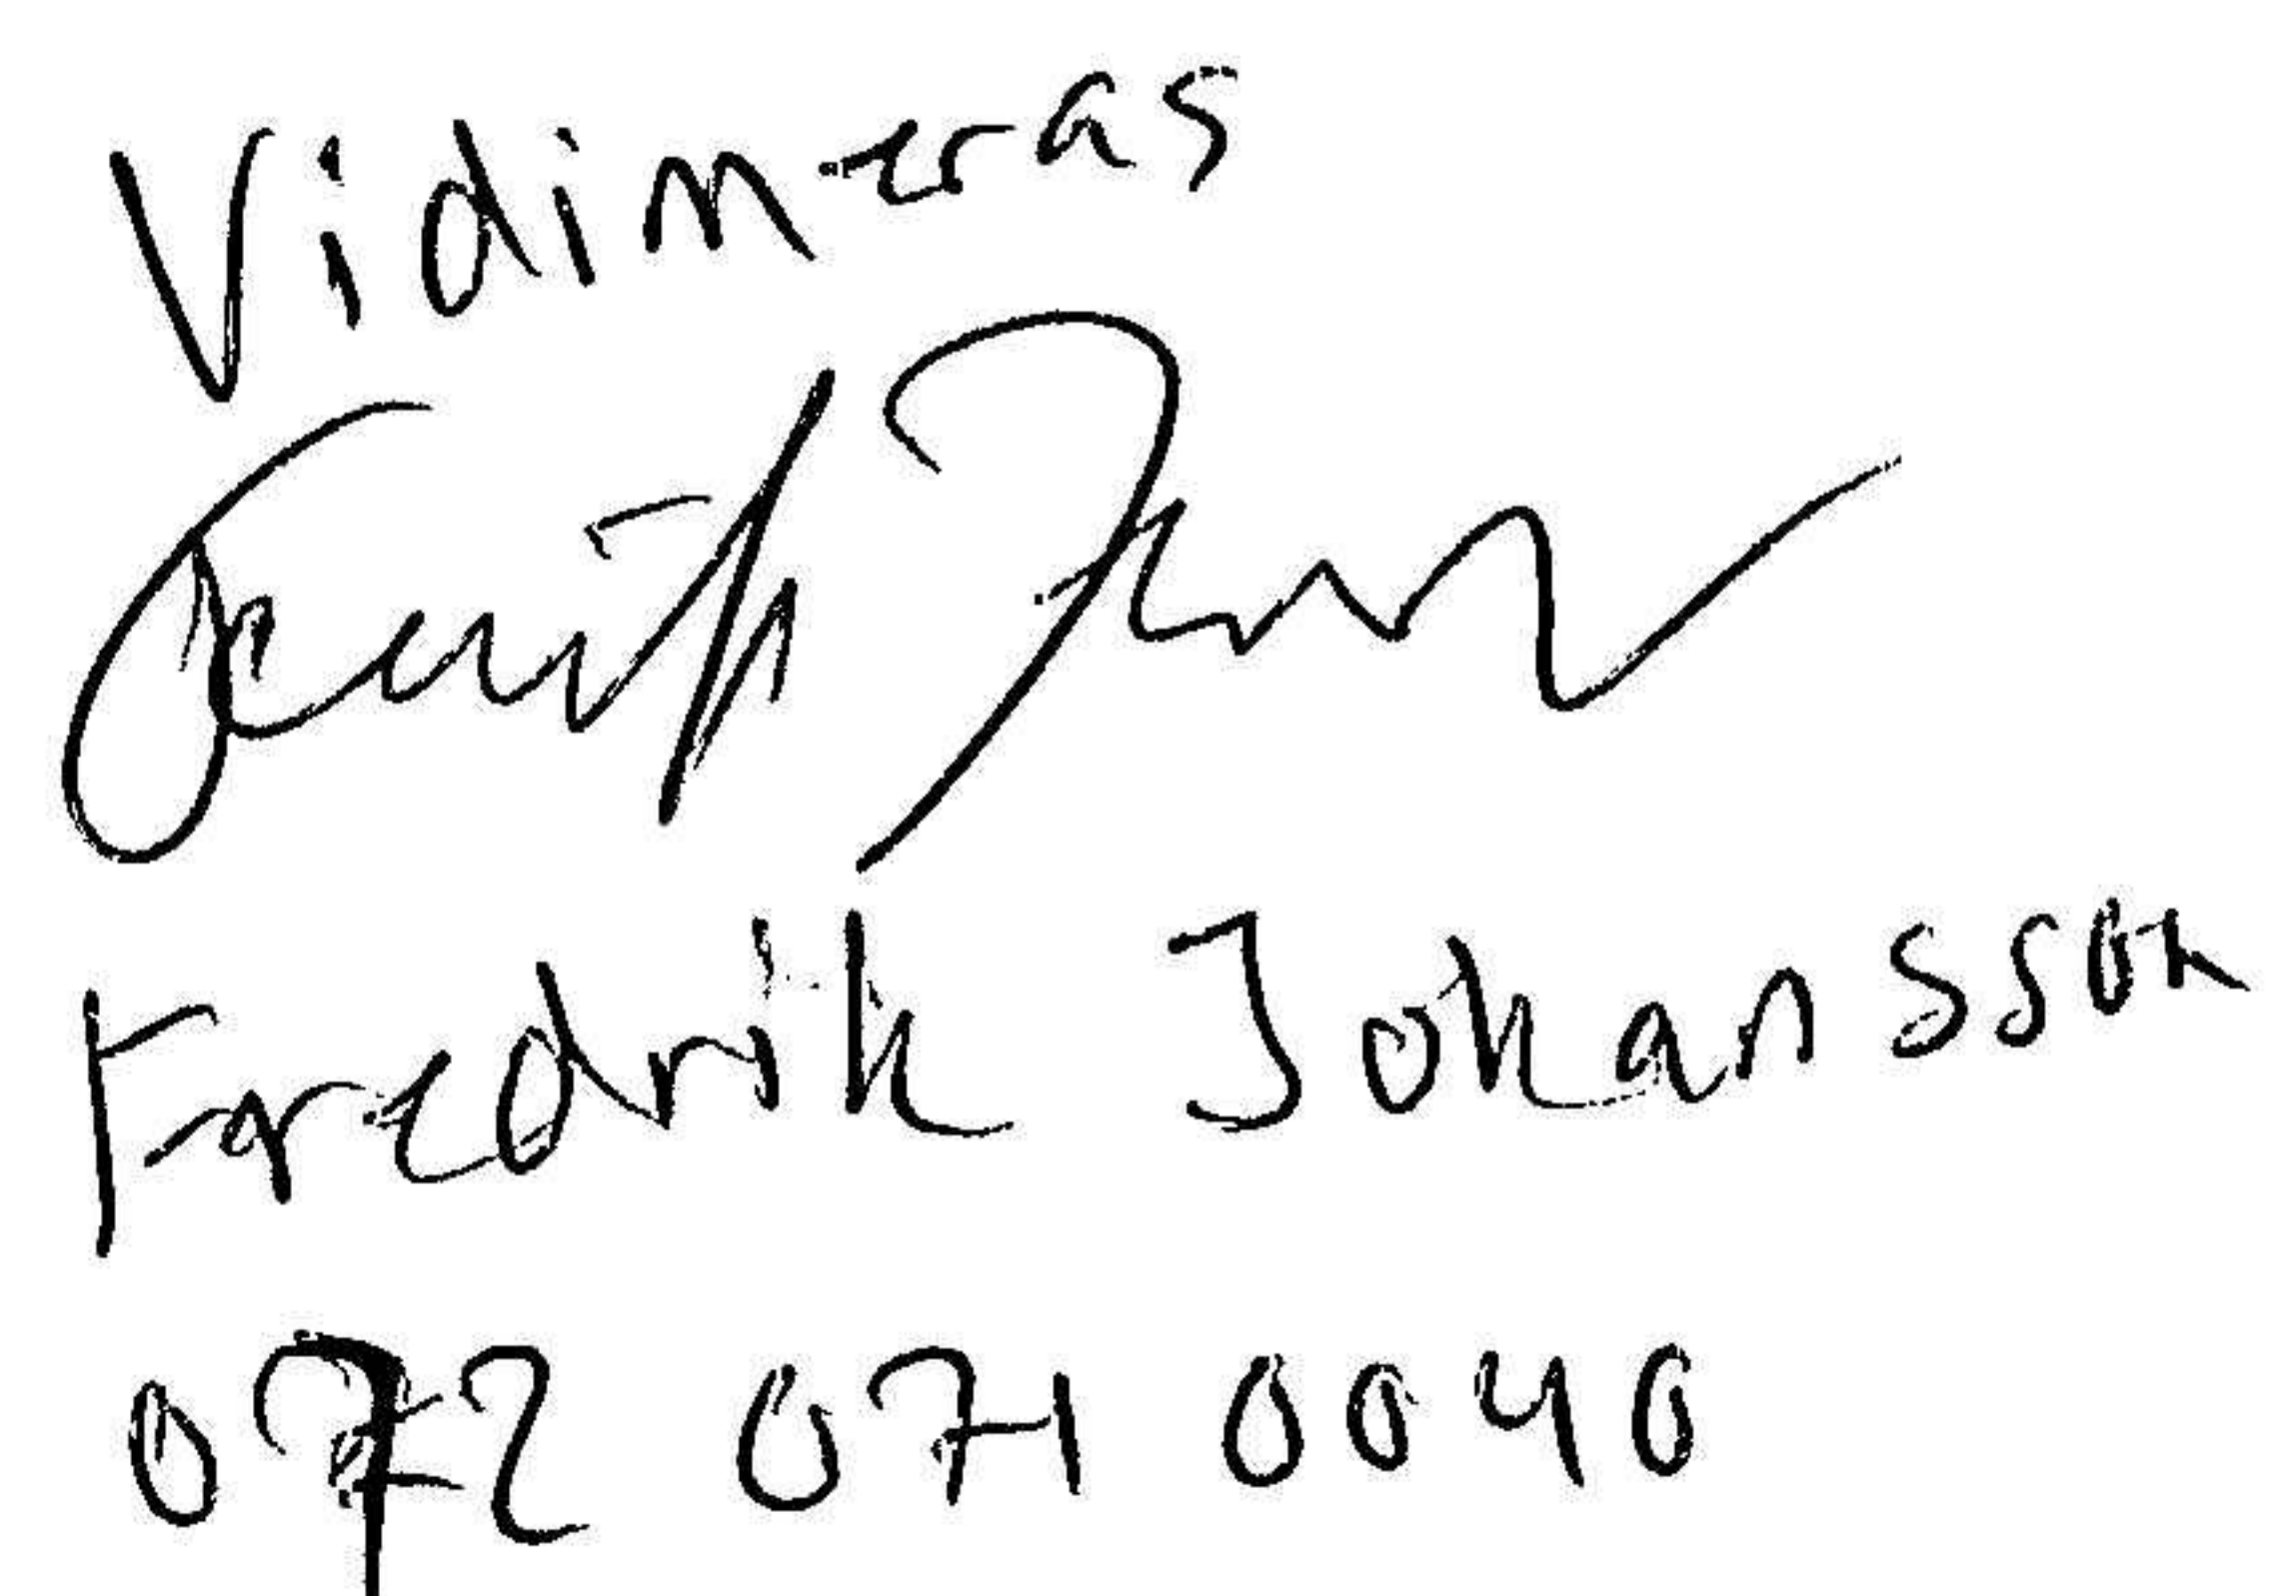 Vidimeras
Fredrik Johansson
072 071 0040